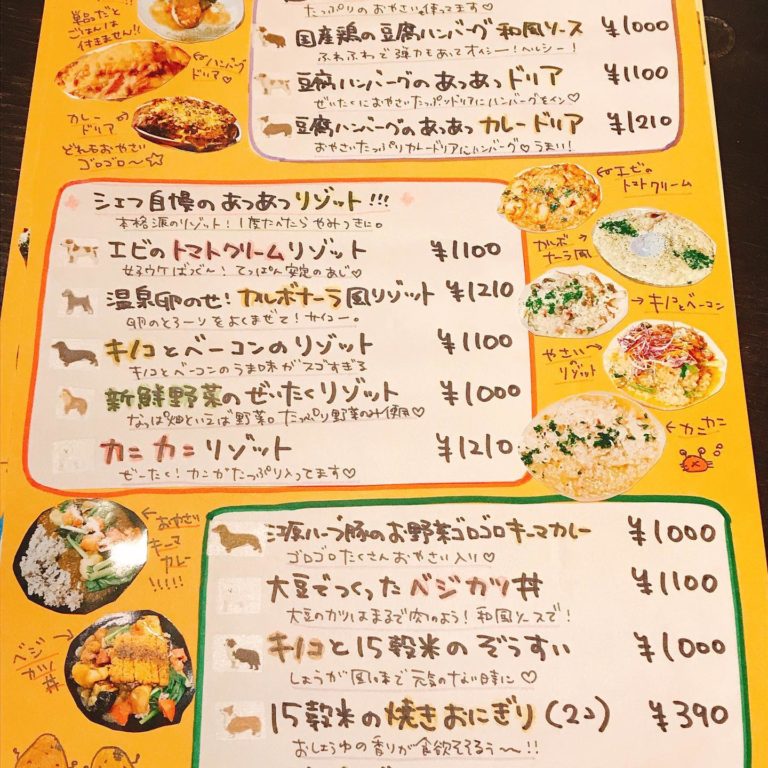 単品だと
ごはんは
付きません!!
ハンバーグ
ドリア♡
カレー
ドリア
どれもおやさい
ゴロゴロ〜☆
たっぷりのおやさい使ってます♡
国産鶏の豆腐ハンバーグ 和風ソース ¥1000
ふわふわで弾力もあってオイシー!ヘルシー!
豆腐ハンバーグのあつあつドリア ¥1100
ぜいたくにおやさいたっぷりドリアにハンバーグをイン♡
豆腐ハンバーグのあつあつカレードリア ¥1210
おやさいたっぷりカレードリアにハンバーグ♡うまい!
シェフ自慢のあつあつリゾット!!!
本格派のリゾット!1度たべたらやみつきに。
エビのトマトクリームリゾット ¥1100
女子ウケばつぐん!てっぱん安定のあじ♡
温泉卵のせ!カルボナーラ風リゾット ¥1210
卵のとろーりをよくまぜて!サイコー。
キノコとベーコンのリゾット ¥1100
キノコとベーコンのうま味がスゴすぎる
新鮮野菜のぜいたくリゾット ¥1000
なっぱ畑といえば野菜。たっぷり野菜のみ使用♡
カニカニリゾット ¥1210
ぜーたく!カニがたっぷり入ってます♡
エビの
トマトクリーム
カルボ
ナーラ風
キノコとベーコン
やさいの
リゾット
カニカニ
おやさい
キーマ
カレー
!!!!!
ベジ
カツ丼
ハーブ豚のお野菜ゴロゴロキーマカレー ¥1000
ゴロゴロたくさんおやさい入り♡
大豆でつくったベジカツ丼 ¥1100
大豆のカツはまるで肉のよう!和風ソースで!
キノコと15穀米のぞうすい ¥1000
しょうが風味で元気のない時に♡
15穀米の焼きおにぎり(2コ) ¥390
おしょうゆの香りが食欲そそるぅ〜!!